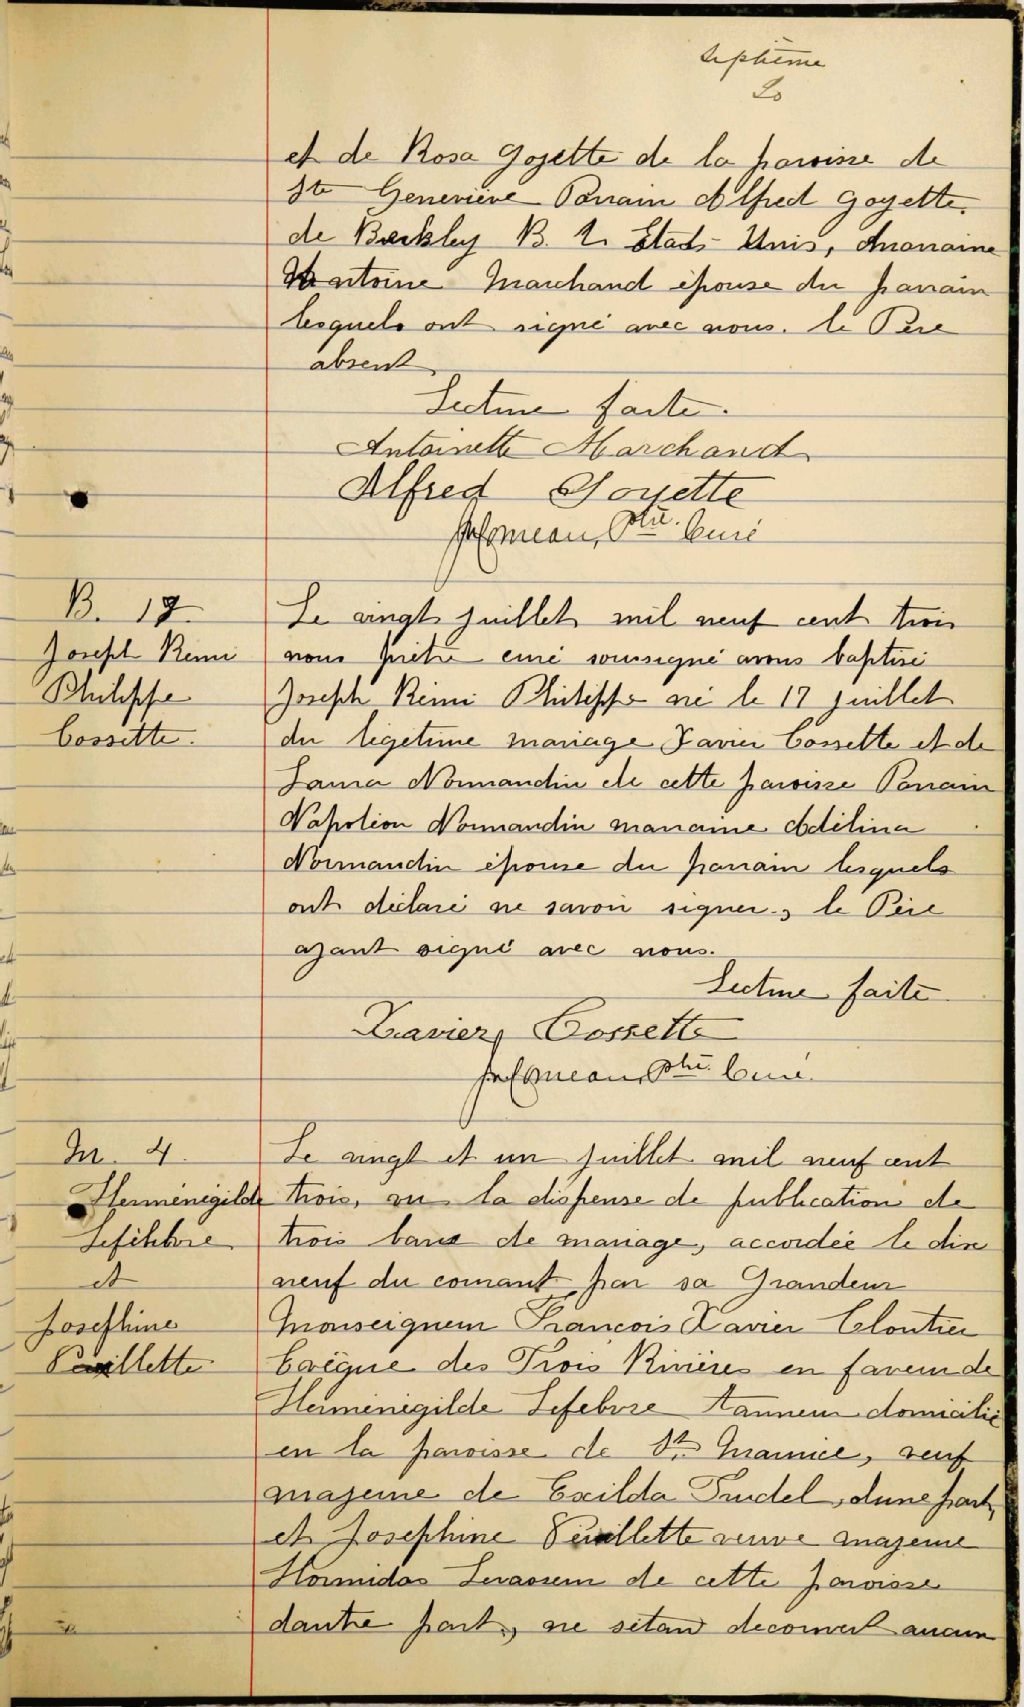 septième
Lo
et de Rosa Goyette de la paroisse de
Ste Geneviève Parrain Alfred Goyette.
de Berkley B. I. Etats-Unis, Marraine
Antoine Marchand épouse du parrain
lesquels ont signé avec nous. le Père
absent
Lecture faite.
Antoinette Marchand
Alfred Goyette
Comeau, Ptre. Curé
B. 17.
Joseph Remi
Philippe
Cossette.
Le vingt juillet mil neuf cent trois
nous prêtre curé soussigné avons baptisé
Joseph Rémi Philippe né le 17 juillet
du légetime mariage Xavier Cossette et de
Laura Normandin de cette paroisse Parrain
Napoléon Normandin marraine Adélina
Normandin épouse du parrain lesquels
ont déclaré ne savoir signer, le Père
ayant signé avec nous.
Lecture faite
Xavier Cossette
Comeau Ptre. Curé.
M. 4.
Herménégilde
Lefebbre
et
Josephine
Veillette
Le vingt et un juillet mil neuf cent
trois, vu la dispense de publication de
trois bans de mariage, accordée le dix
neuf du courant par sa Grandeur
Monseigneur Francois Xavier Cloutier
Evêque des Trois Rivières en faveur de
Herménégilde Lefebvre tanneur domicilié
en la paroisse de St. Maurice, veuf
majeure de Exilda Trudel, dune part,
et Josephine Veuillette veuve majeure
Hormidas Levasseur de cette paroisse
dautre part, ne sétant decouvert aucun